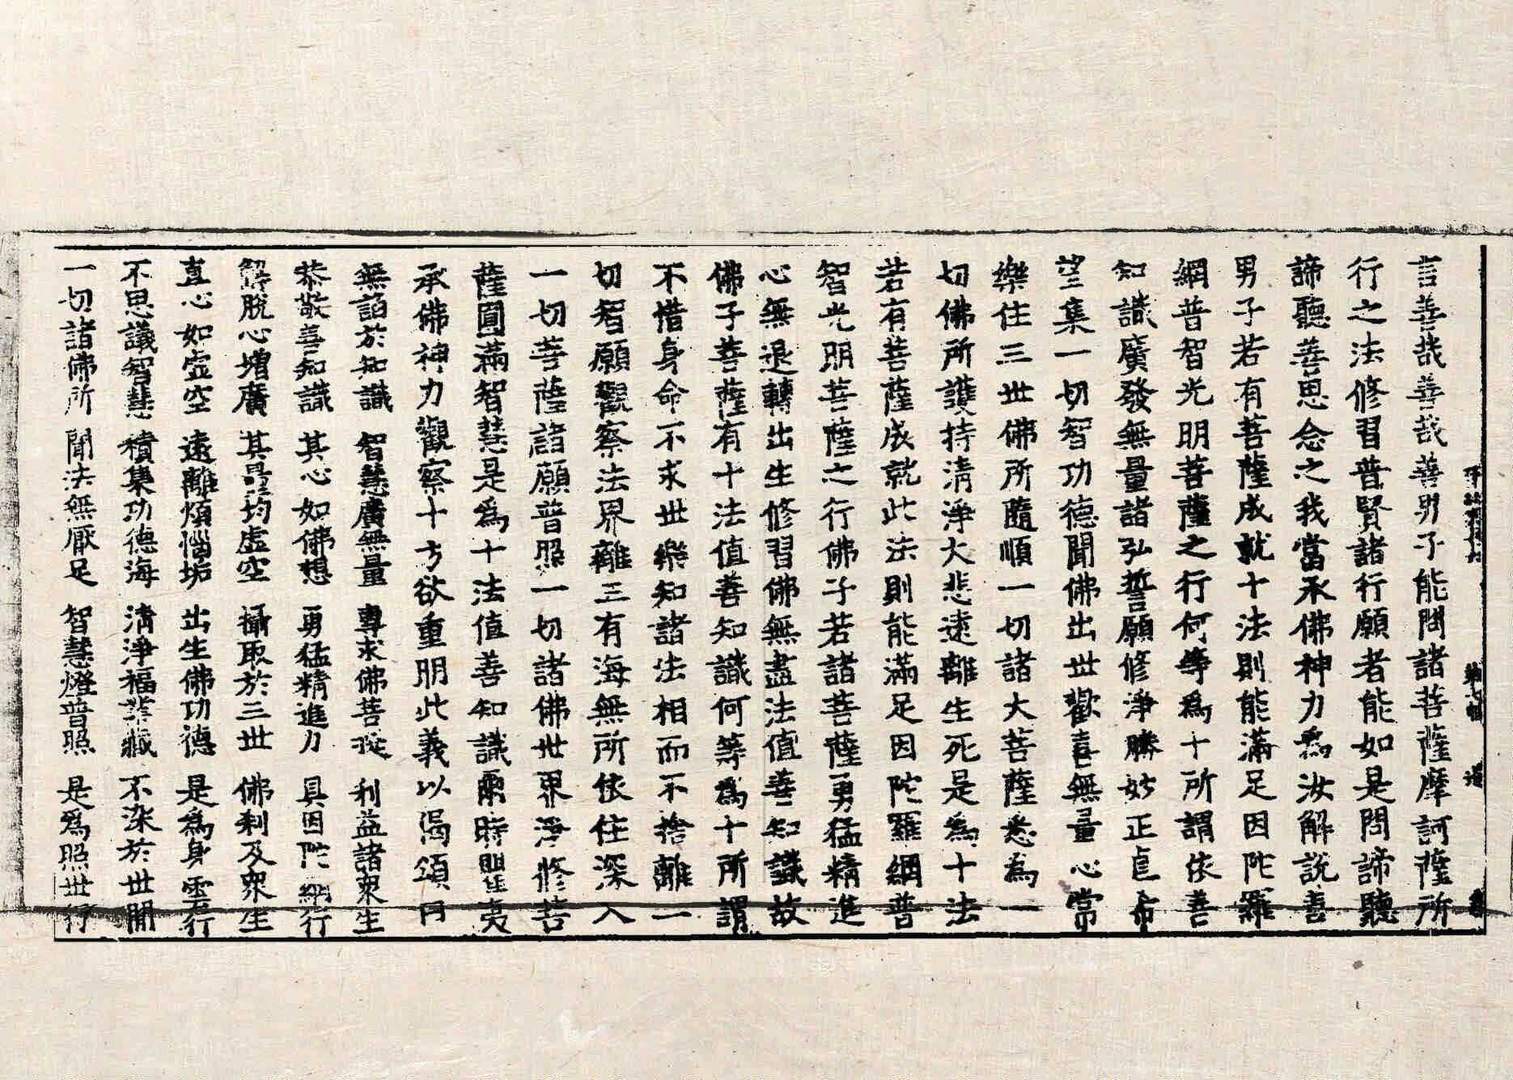 言善哉善哉善男子能問諸菩薩摩訶薩所
行之法修習普賢諸行願者能如是問諦聽
諦聽善思念之我當承佛神力為汝解說善
男子若有菩薩成就十法則能滿足因陀羅
網普智光明菩薩之行何等為十所謂依善
知識廣發無量諸弘誓願修淨勝妙正直希
望集一切智功德聞佛出世歡喜無量心常
樂住三世佛所隨順一切諸大菩薩悉為一
切佛所護持清淨大悲遠離生死是為十法
若有菩薩成就此法則能滿足因陀羅網普
智光明菩薩之行佛子若諸菩薩勇猛精進
心無退轉出生修習佛無盡法值善知識故
佛子菩薩有十法值善知識何等為十所謂
不惜身命不求世樂知諸法相而不捨離一
切智願觀察法界離三有海無所依住深入
一切菩薩諸願普照一切諸佛世界淨修菩
薩圓滿智慧是為十法值善知識爾時聖夷
承佛神力觀察十方欲重明此義以偈頌曰
無諂於知識 智慧廣無量 專求佛菩提 利益諸衆生
恭敬善知識 其心如佛想 勇猛精進力 具因陀網行
解脫心增廣 其量均虛空 攝取於三世 佛刹及衆生
直心如虛空 遠離煩惱垢 出生佛功德 是為身雲行
不思議智慧 積集功德海 清淨福業藏 不染於世間
一切諸佛所 聞法無厭足 智慧燈普照 是為照世行